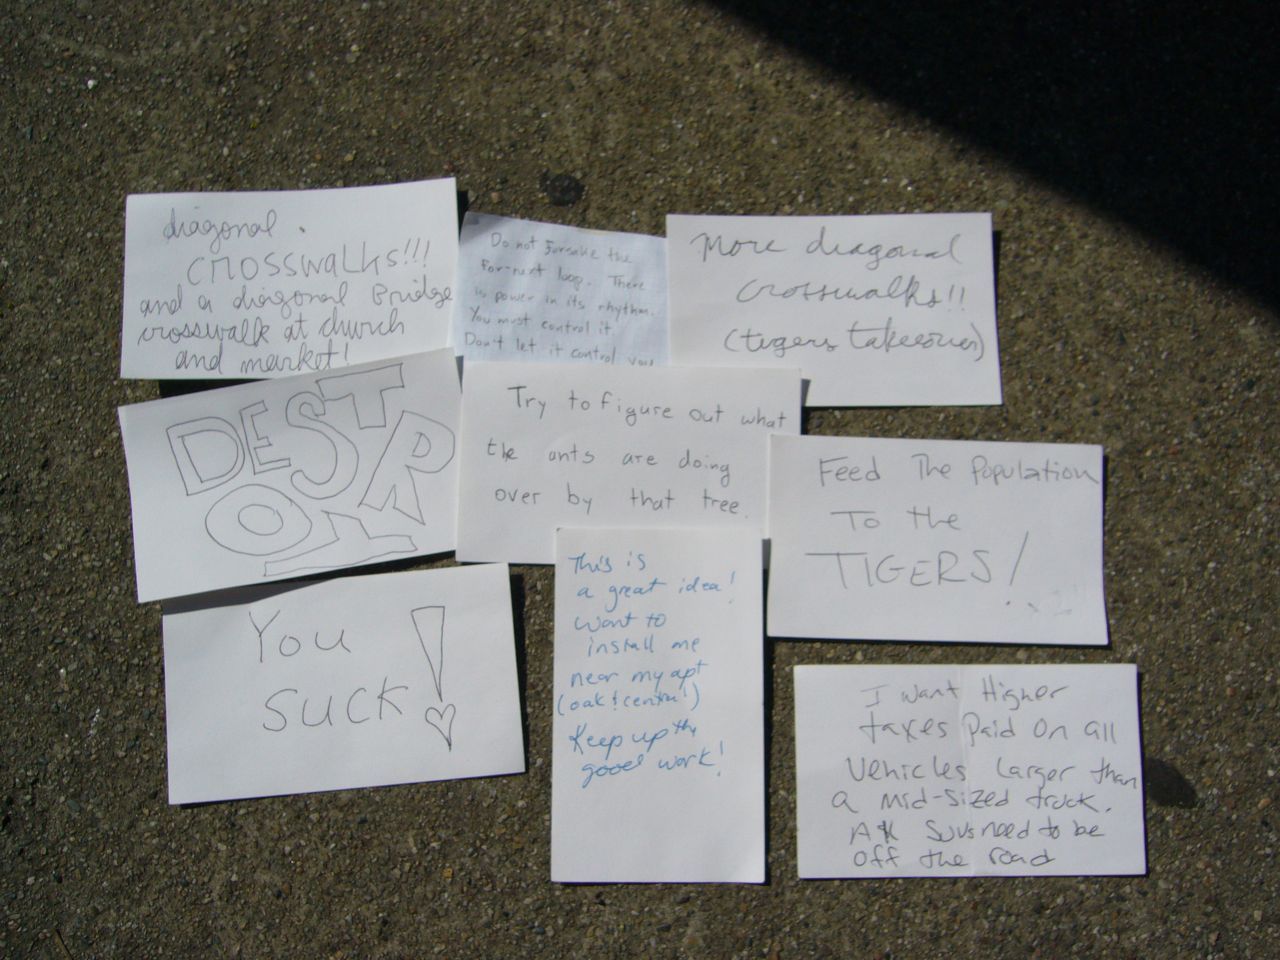 diagonal
crosswalks!!!
and a diagonal Bridge
crosswalk at church
and market!
Do not Forsake the
For-next loop. There
is power in its rhythm.
You must control it.
Don't let it control you
More diagonal
crosswalks!!
(tigers takeover)
DESTR
OY
Try to figure out what
the ants are doing
over by that tree.
Feed The Population
To the
TIGERS!
You
SUCK!
This is
a great idea!
Want to
install me
near my apt
(oak & central)
Keep up the
good work!
I want Higher
taxes Paid On all
Vehicles Larger than
a mid-sized truck.
All Suvs need to be
off the road